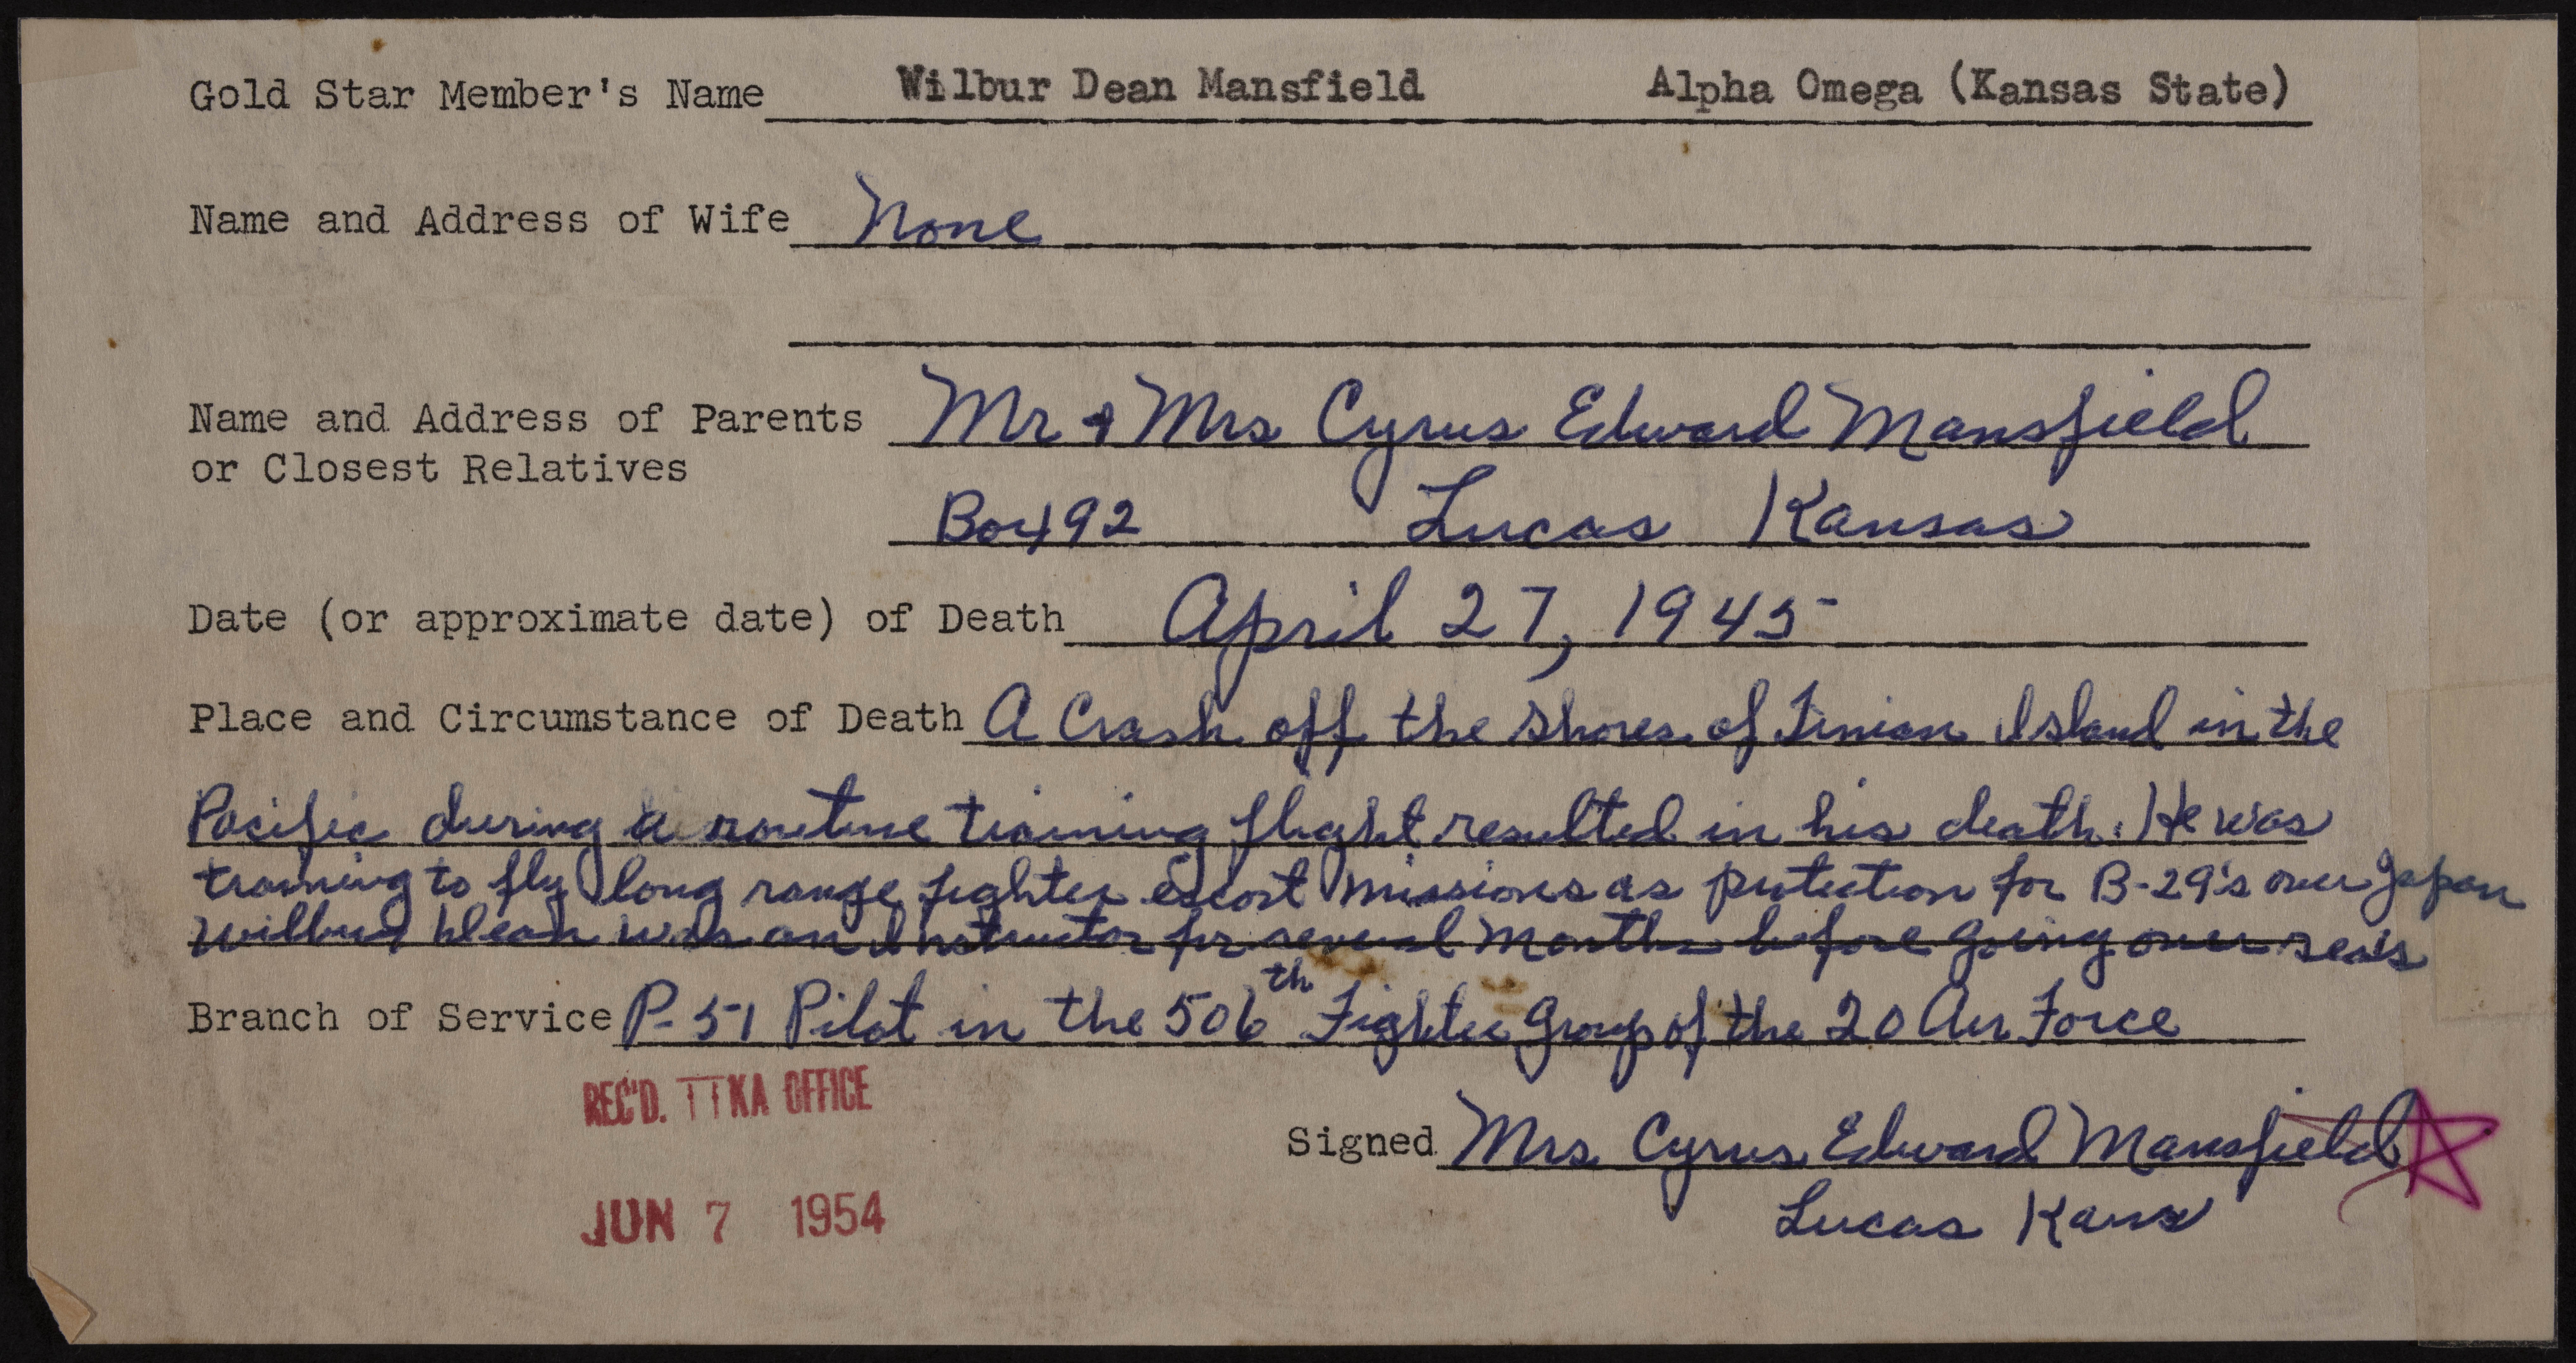 Gold Star Member's Name Wilbur Dean Mansfield Alpha Omega (Kansas State)
Name and Address of Wife None
Name and Address of Parents Mr & Mrs Cyrus Edward Mansfield
or Closest Relatives
Box 92 Lucas Kansas
Date (or approximate date) of Death April 27, 1945
Place and Circumstance of Death A Crash off the shores of Tinian Island in the
Pacific during a routine training flight resulted in his death. He was
training to fly long range fighter escort missions as protection for B-29's over Japan
Wilbur Dean was an Instructor for several months before going over seas
Branch of Service P-51 Pilot in the 506th Fighter Group of the 20 Air Force
REC'D. TTKA OFFICE
Signed Mrs. Cyrus Edward Mansfield
JUN 7 1954
Lucas Kans